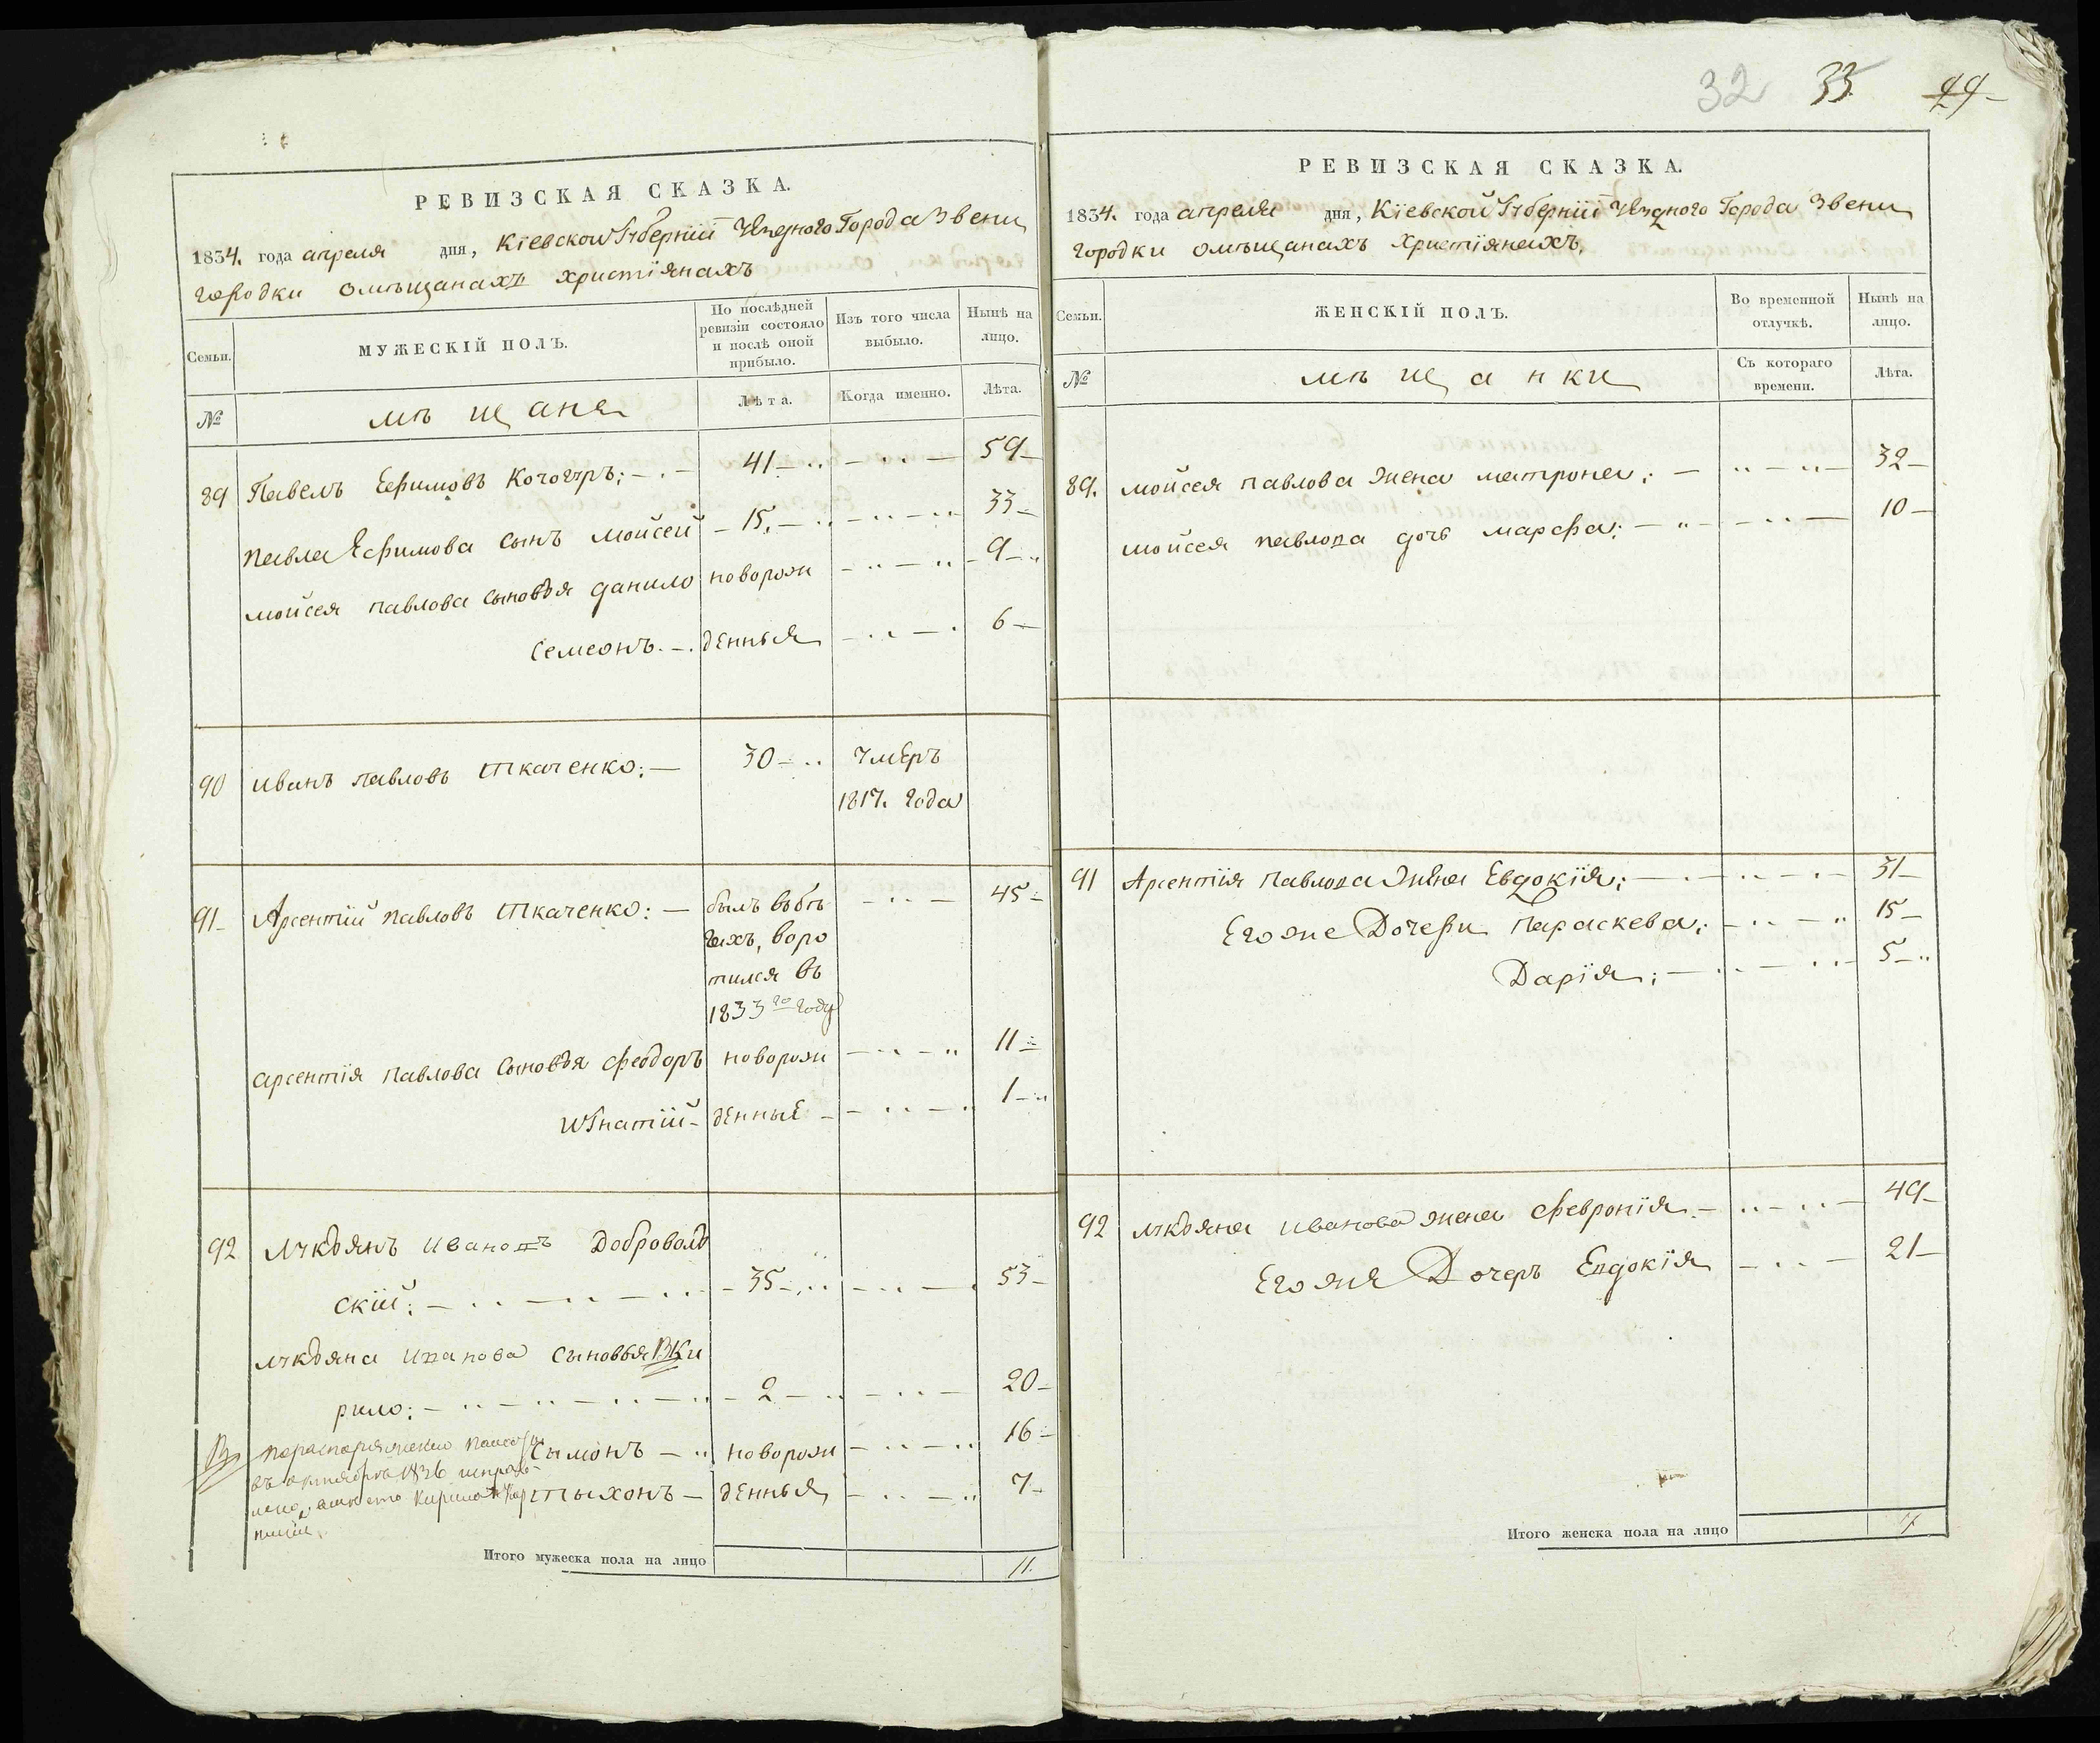 32 33 44
РЕВИЗСКАЯ СКАЗКА.
1834. года апреля дня, Кіевской Губерніи Уезднаго Города Звени
городки омѣщанахъ христіянахъ
Семьи.
МУЖЕСКІЙ ПОЛЪ.
По послѣдней ревизіи состояло и послѣ оной прибыло.
Изъ того числа выбыло.
Нынѣ на лицо.
№
мѣщане
Лѣта.
Когда именно.
Лѣта.
89 Павелъ Ефимовъ 41 59
Павла Ефимова сынъ мойсей 15. 33
мойсея павлова сыновья данило новорож 9
семеонъ. денныя 6
90 иванъ павловъ ткаченко: 30 умеръ
1817. года
91 Арсентій павловъ ткаченко: былъ въбѣ 45
гахъ, воро
тился въ
1833 го году
арсентія павлова сыновья феодоръ новорож 11
игнатій денные 1
92 лукьянъ ивановъ доброволь
скій: 35 53
лукьяна иванова сыновья Ки
рило: 2 20
сымонъ новорож 16
тыхонъ денныя 7
Итого мужеска пола на лицо 11.
РЕВИЗСКАЯ СКАЗКА.
1834. года апреля дня, Кіевской Губерніи Уезднаго Города Звени
городки омѣщанахъ христіянахъ,
Семьи.
ЖЕНСКІЙ ПОЛЪ.
Во временной отлучкѣ.
Нынѣ на лицо.
№
мѣщанки
Съ котораго времени.
Лѣта.
89. мойсея павлова жена матрона: 32
мойсея павлова дочь марфа: 10
91 Арсентія павлова жена Евдокія: 31
Егоже Дочери параскева: 15
Дарія: 5
92 лукьяна иванова жена февронія 49
Егоже Дочеръ Евдокія 21
Итого женска пола на лицо 7